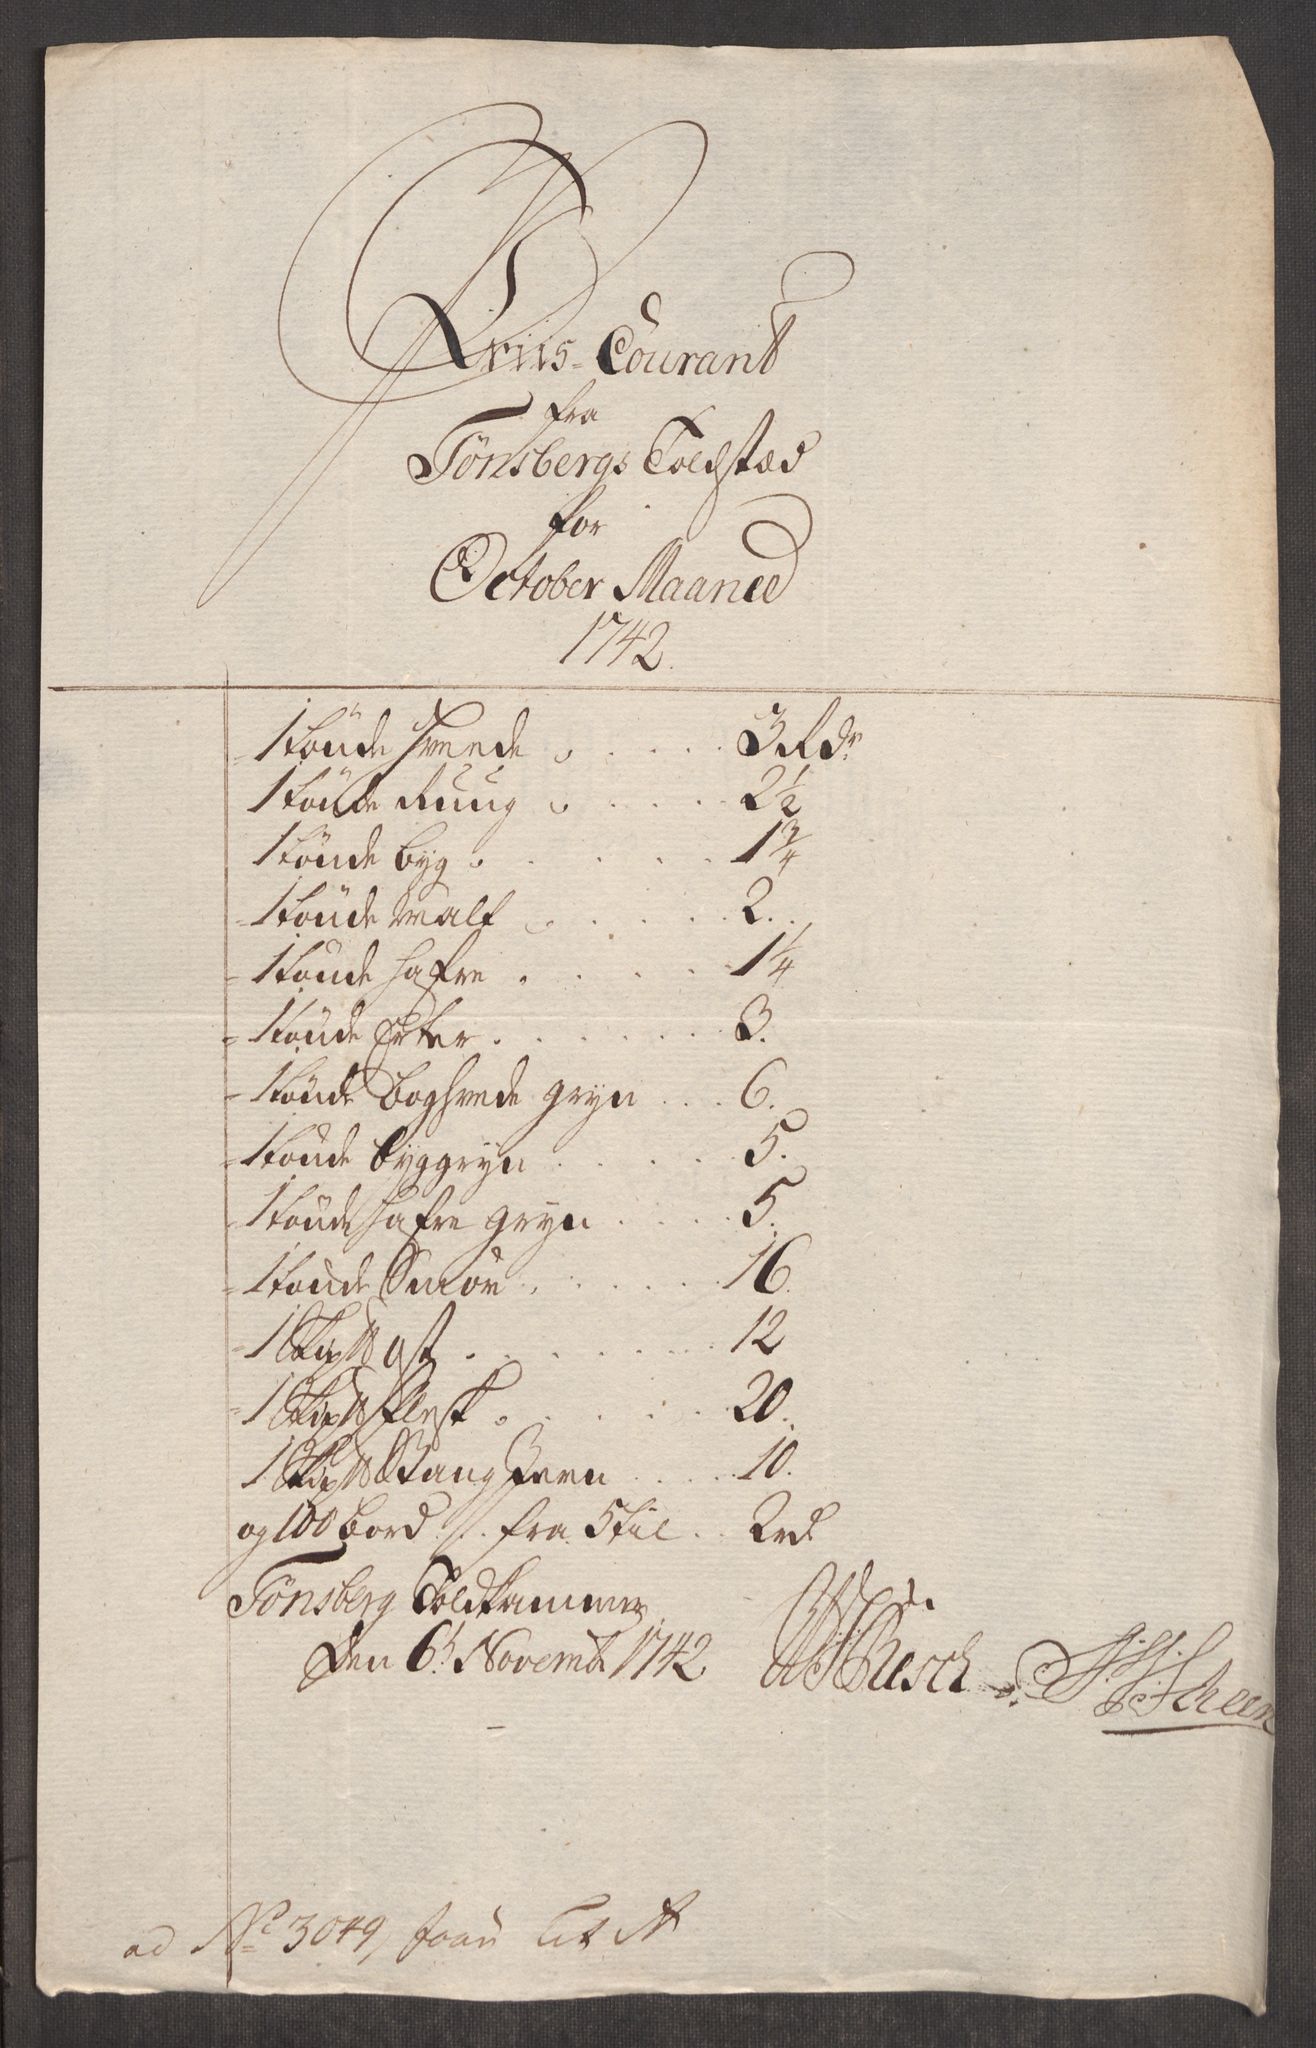 Priis-Courant
fra
Tønsbergs Toldstæd
for
October Maaned
1742.
1 tönde Hvede . . . . 3 Rdr
1 tönde Ruug . . . . 2½
1 tönde byg . . . . . 1¾
1 tönde Malt . . . . 2.
1 tönde hafre . . . . . 1¼
1 tönde Erter . . . . . . 3.
1 tönde boghvede gryn . . . 6.
1 tönde byggryn . . . . . 5.
1 tönde hafre gryn . . . . 5.
1 tönde Smör . . . . . 16.
1 Skip℔ Ost . . . . . . . 12
1 Skip℔ Flesk . . . . . 20.
1 Skip℔ Stang Jern . . . . 10.
og 100 bord . . fra 5 til . . 2 rd
Tønsberg Toldkammer,
Den 6t Novemb: 1742
Büsch
ad No 3049,